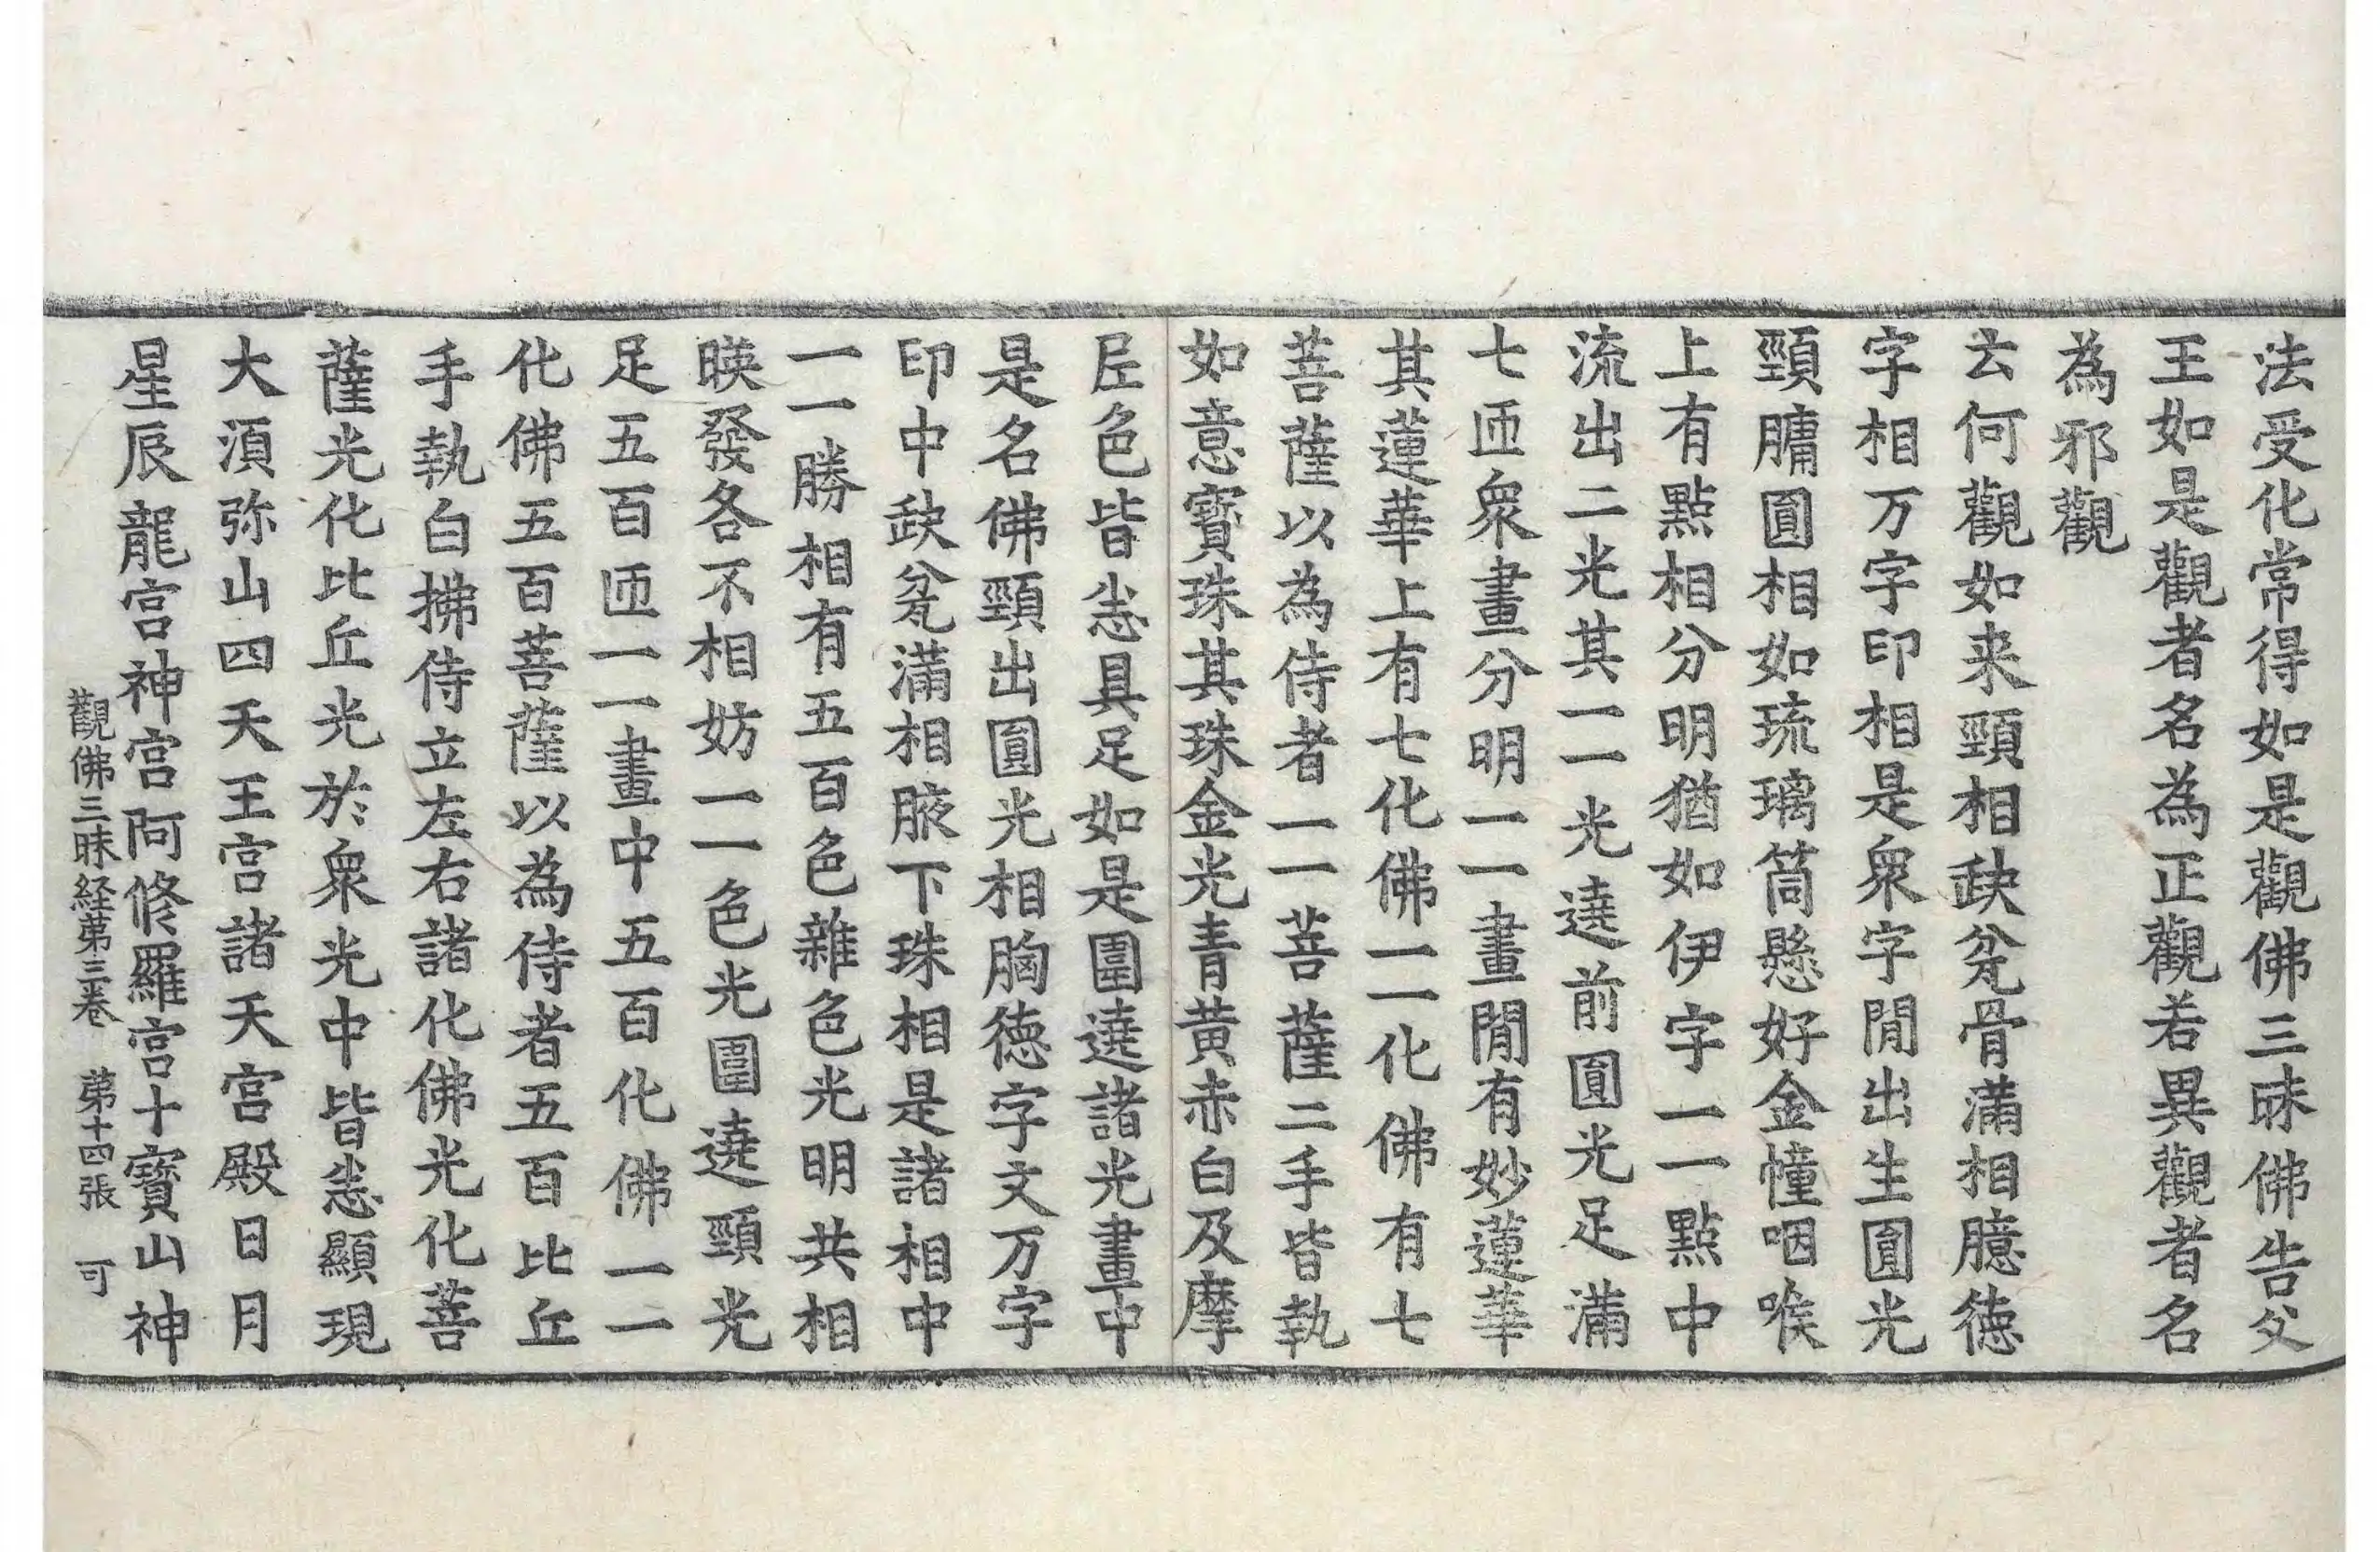 法受化常得如是觀佛三昧佛告父
王如是觀者名為正觀若異觀者名
為邪觀
云何觀如来頸相缺瓫骨滿相臆德
字相万字印相是衆字閒出生圓光
頸牗圓相如琉璃筒懸好金幢咽喉
上有點相分明猶如伊字一一點中
流出二光其一一光遶前圓光足滿
七匝衆畫分明一一畫閒有妙蓮華
其蓮華上有七化佛一一化佛有七
菩薩以為侍者一一菩薩二手皆執
如意寶珠其珠金光青黄赤白及摩
尼色皆悉具足如是圍遶諸光畫中
是名佛頸出圓光相胸德字文万字
印中缺瓫滿相腋下珠相是諸相中
一一勝相有五百色雜色光明共相
暎發各不相妨一一色光圍遶頸光
足五百匝一一畫中五百化佛一一
化佛五百菩薩以為侍者五百比丘
手執白拂侍立左右諸化佛光化菩
薩光化比丘光於衆光中皆悉顯現
大須弥山四天王宮諸天宮殿日月
星辰龍宮神宮阿修羅宮十寶山神
觀佛三昧経第三卷 第十四張 可